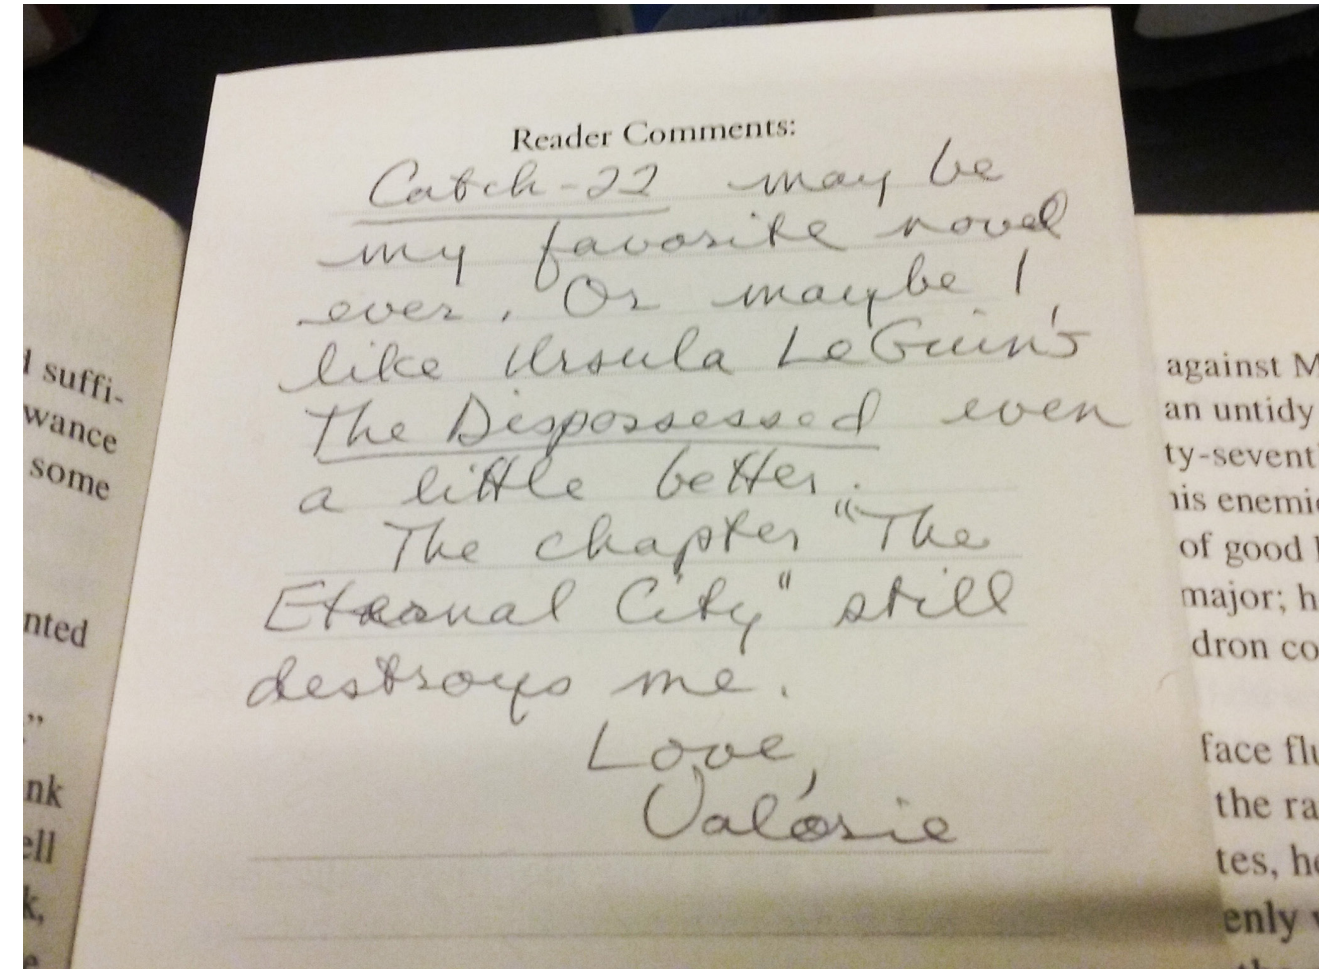 Reader Comments:
Catch-22 may be
my favorite novel
ever. Or maybe I
like Ursula LeGuin's
The Dispossessed even
a little better.
The chapter "The
Eternal City" still
destroys me.
Love,
Valérie
suffi-
wance
some
nted
"
nk
ell
k,
against M
an untidy
ty-sevent
his enemi
of good
major; h
dron co
face flu
the ra
tes, he
enly